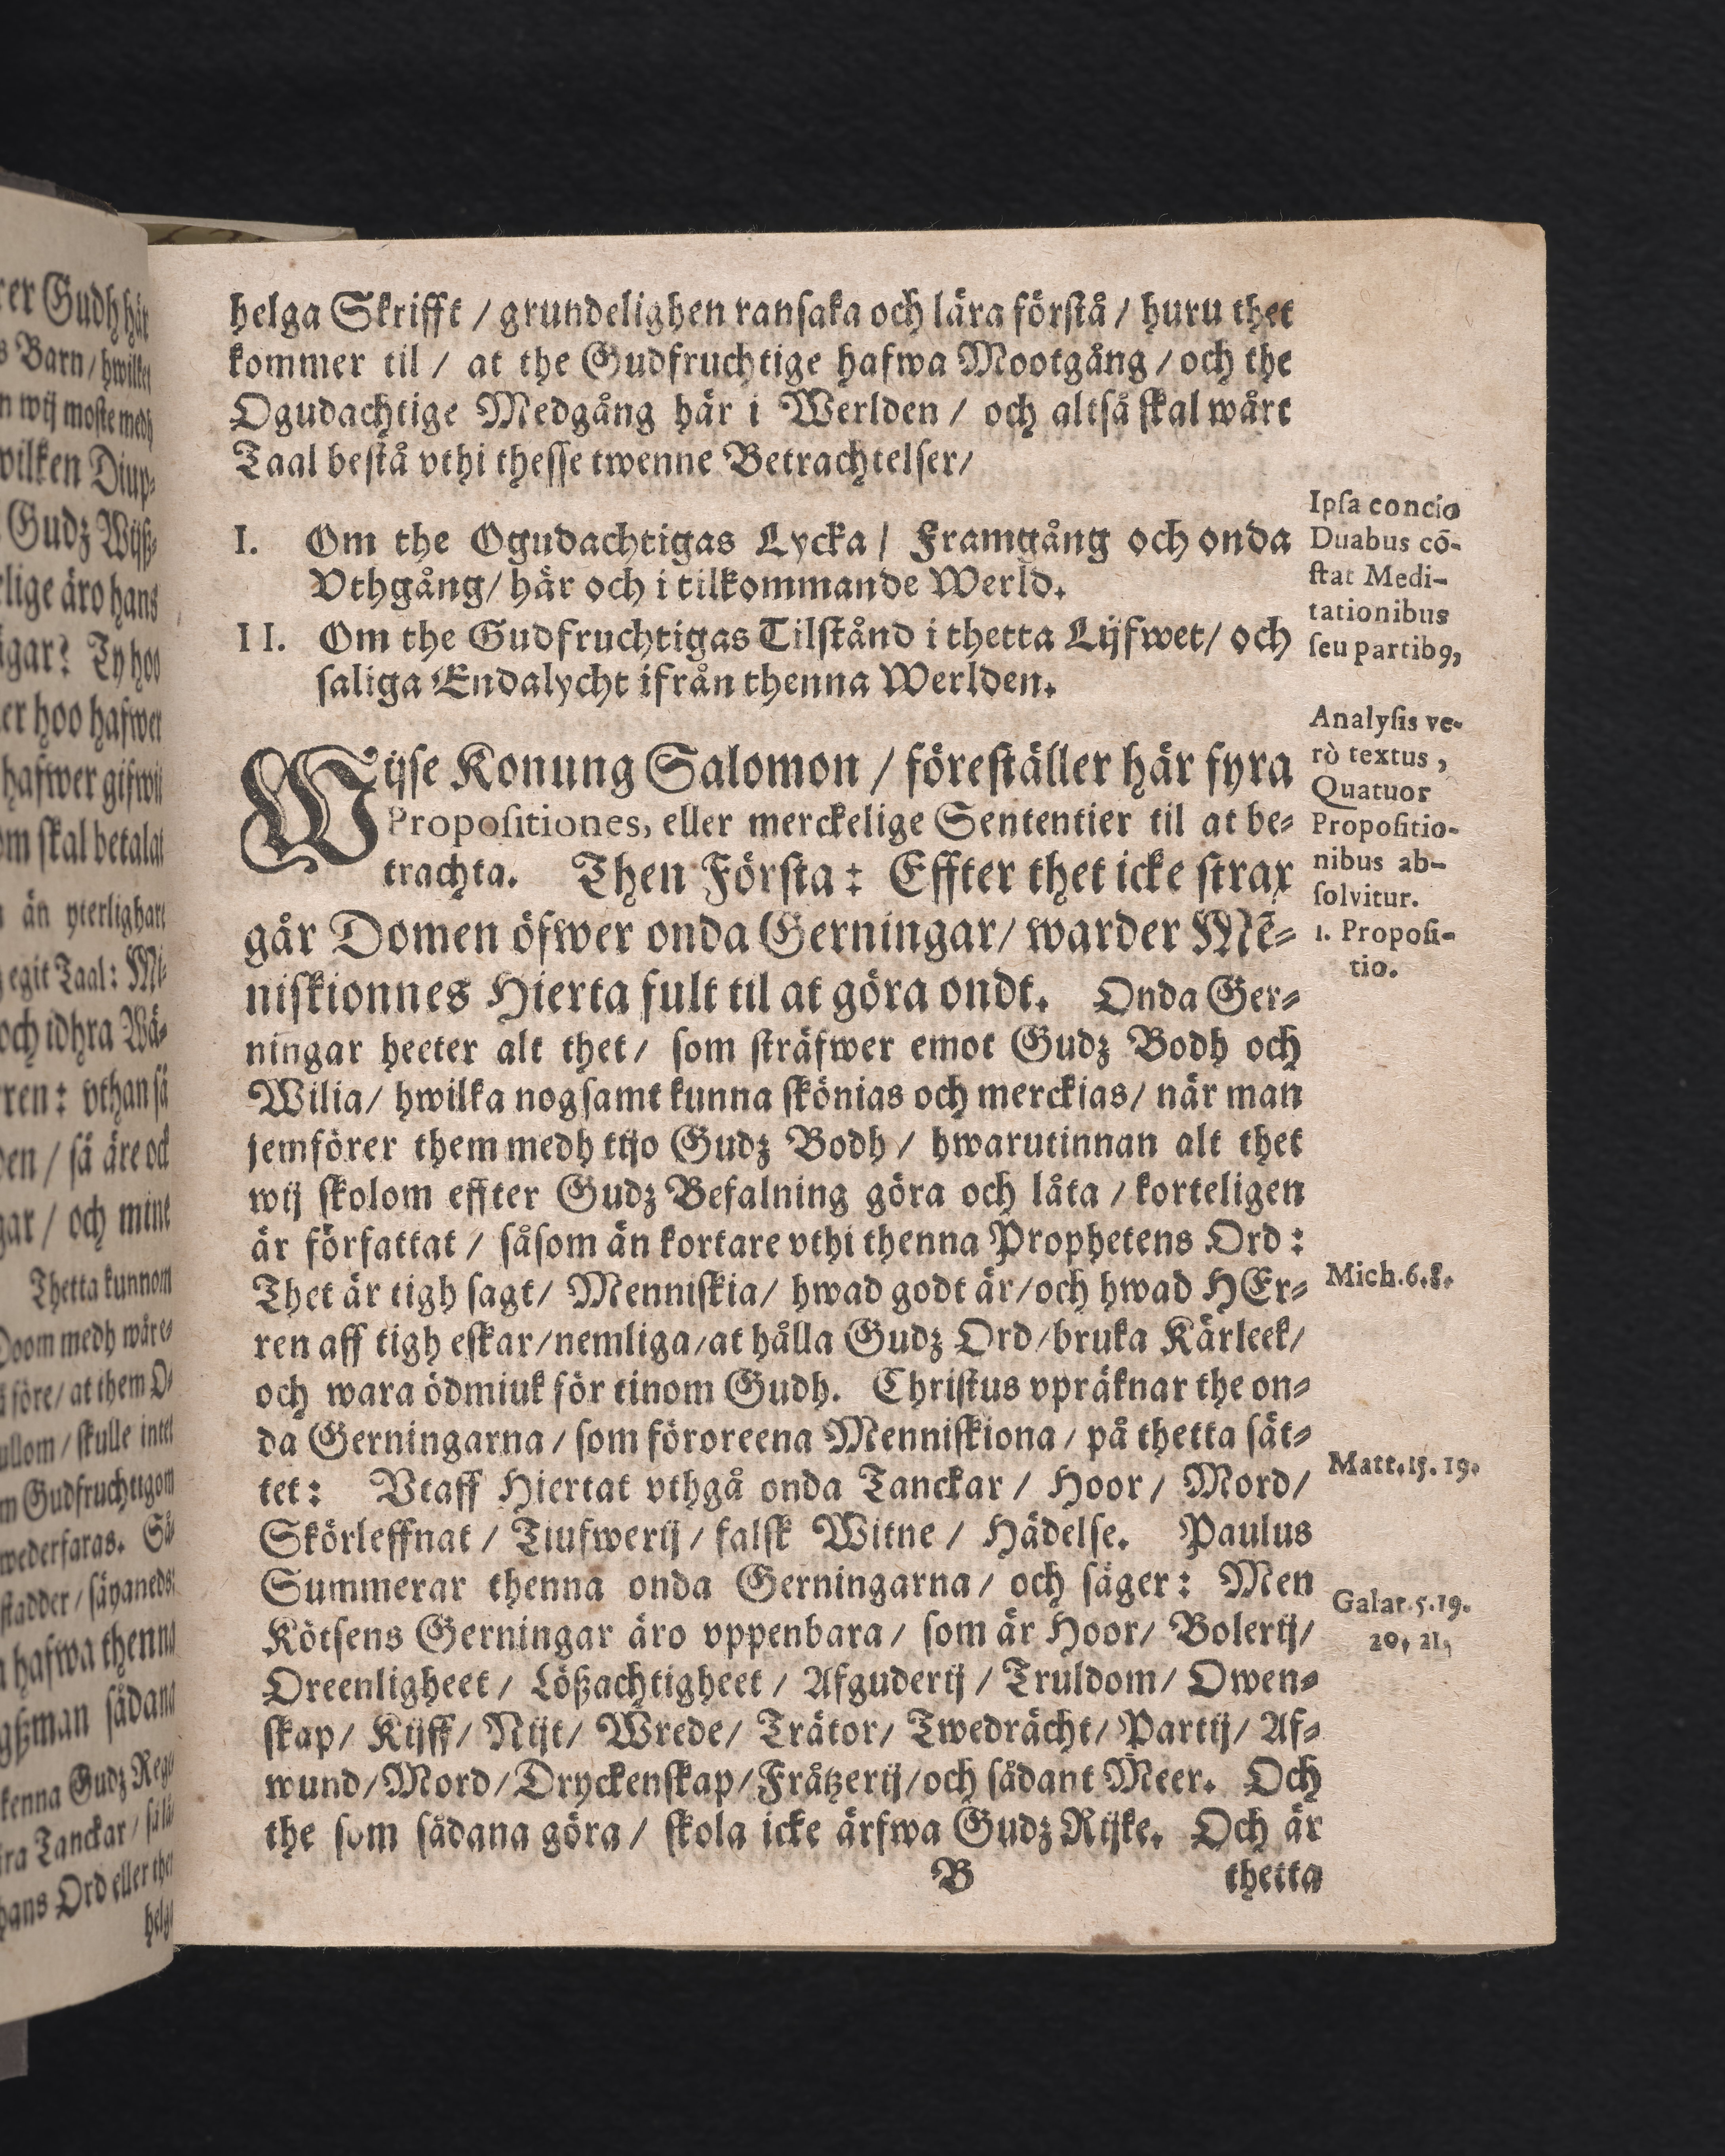 helga Skrifft / grundelighen ransaka och lära förstå / huru thet
kommer til / at the Gudfruchtige hafwa Mootgång / och the
Ogudachtige Medgång här i Werlden / och altså skal wårt
Taal bestå vthi thesse twenne Betrachtelser/
I. Om the Ogudachtigas Lycka / Framgång och onda
Vthgång/ här och i tilkommande Werld.
II. Om the Gudfruchtigas Tilstånd i thetta Lijfwet/ och
saliga Endalycht ifrån thenna Werlden.
Wijse Konung Salomon / föreställer här fyra
Propositiones, eller merckelige Sententier til at be-
trachta. Then Första: Effter thet icke strax
går Domen öfwer onda Gerningar/ warder Mē-
niskionnes Hierta fult til at göra ondt. Onda Ger-
ningar heeter alt thet/ som sträfwer emot Gudz Bodh och
Wilia/ hwilka nogsamt kunna skönias och merckias/ när man
jemförer them medh tijo Gudz Bodh / hwarutinnan alt thet
wij skolom effter Gudz Befalning göra och låta / korteligen
är författat / såsom än kortare vthi thenna Prophetens Ord:
Thet är tigh sagt/ Menniskia/ hwad godt är/och hwad HEr-
ren aff tigh eskar/nemliga/at hålla Gudz Ord/bruka Kärleek/
och wara ödmiuk för tinom Gudh. Christus vpräknar the on-
da Gerningarna / som föroreena Menniskiona / på thetta sät-
tet: Vtaff Hiertat vthgå onda Tanckar / Hoor / Mord/
Skörleffnat / Tiufwerij / falsk Witne / Hädelse. Paulus
Summerar thenna onda Gerningarna / och säger: Men
Kötsens Gerningar äro vppenbara / som är Hoor/ Bolerij/
Oreenligheet / Lößachtigheet / Afguderij / Truldom/ Owen-
skap/ Kijff/ Nijt/ Wrede/ Trätor/ Twedrächt/ Partij/ Af-
wund/Mord/Dryckenskap/Fråtzerij/och sådant Meer. Och
the som sådana göra / skola icke ärfwa Gudz Rijke. Och är
B thetta
Ipsa concio
Duabus cō-
stat Medi-
tationibus
seu partib9,
Analysis ve-
rò textus,
Quatuor
Propositio-
nibus ab-
solvitur.
1. Proposi-
tio.
Mich.6.8.
Matt.15.19.
Galat.5.19.
20, 21,